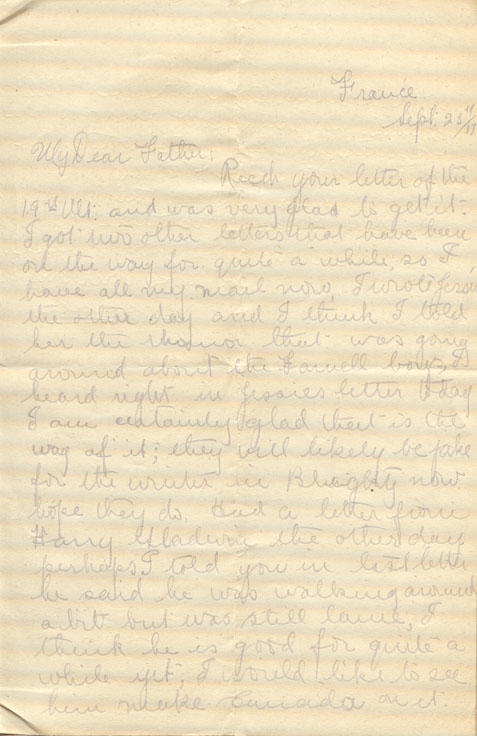 France
Sept. 25th/17
My Dear Father;
Recd your letter of the
19th Ult. and was very glad to get it.
I got two other letters that have been
on the way for quite a while, so I
have all my mail now, I wrote
the other day and I think I told
her the rhumor that was going
around about the Farnell boys, I
heard right in Jessies letter to day
I am certainly glad that is the
way of it; they will likely be
for the winter in Blaighty now
hope they do. Had a letter from
Harry Gladwin the other day
perhaps I told you in last letter
he said he was walking around
a bit but was still lame, I
think he is good for quite a
while yet; I would like to see
him make Canada on it.